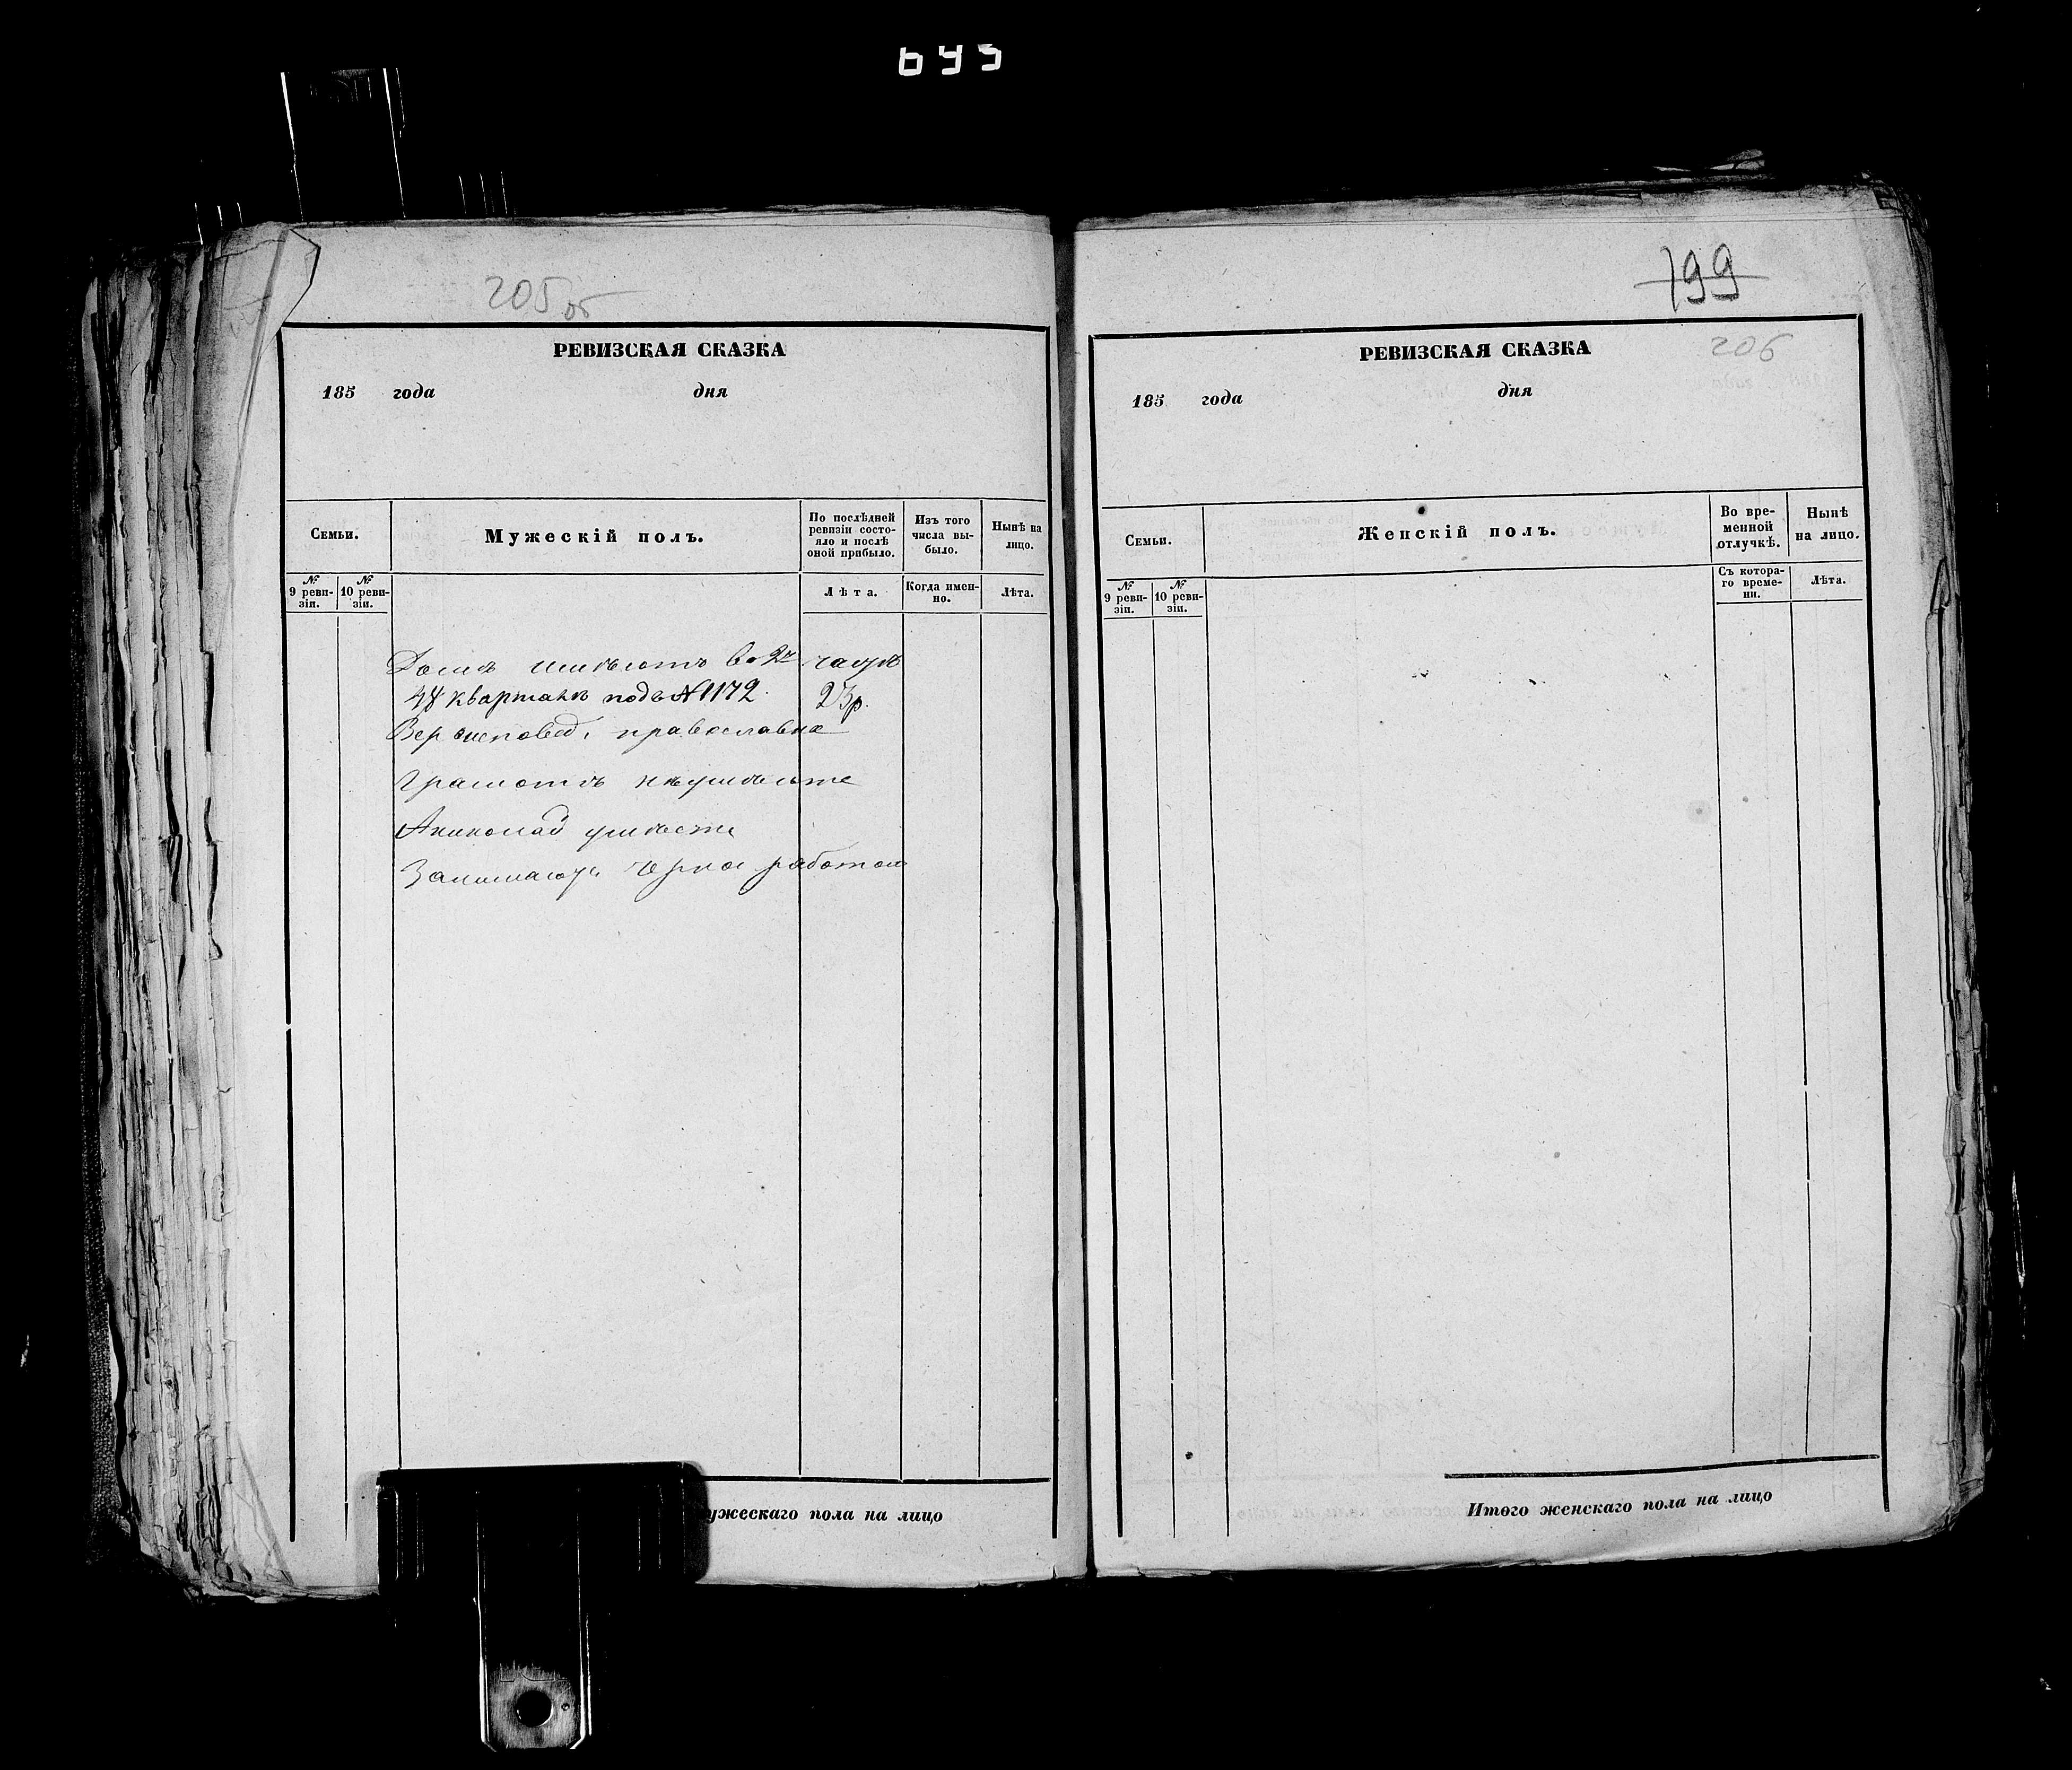 693
205об
РЕВИЗСКАЯ СКАЗКА
185 года дня
Семьи.
Мужескій полъ.
По послѣдней ревизіи состо-
яло и послѣ оной прибыло.
Изъ того числа вы-
было.
Нынѣ на лицо.
№ 9 реви-
зіи.
№ 10 реви-
зіи.
Лѣта.
Когда имен-
но.
Лѣта.
Домъ имѣютъ во 2й часте
квартале подъ №1172 23р.
Вер исповед. православна
Грамотѣ неумѣюте
Николай умѣете
Занимаюс черно работою
ужескаго пола на лицо
199
206
РЕВИЗСКАЯ СКАЗКА
185 года дня
Семьи.
Женскій полъ.
Во вре-
менной отлучкѣ.
Нынѣ на лицо.
№ 9 реви-
зіи.
№ 10 реви-
зіи.
Съ котора-
го време-
ни.
Лѣта.
Итого женскаго пола на лицо